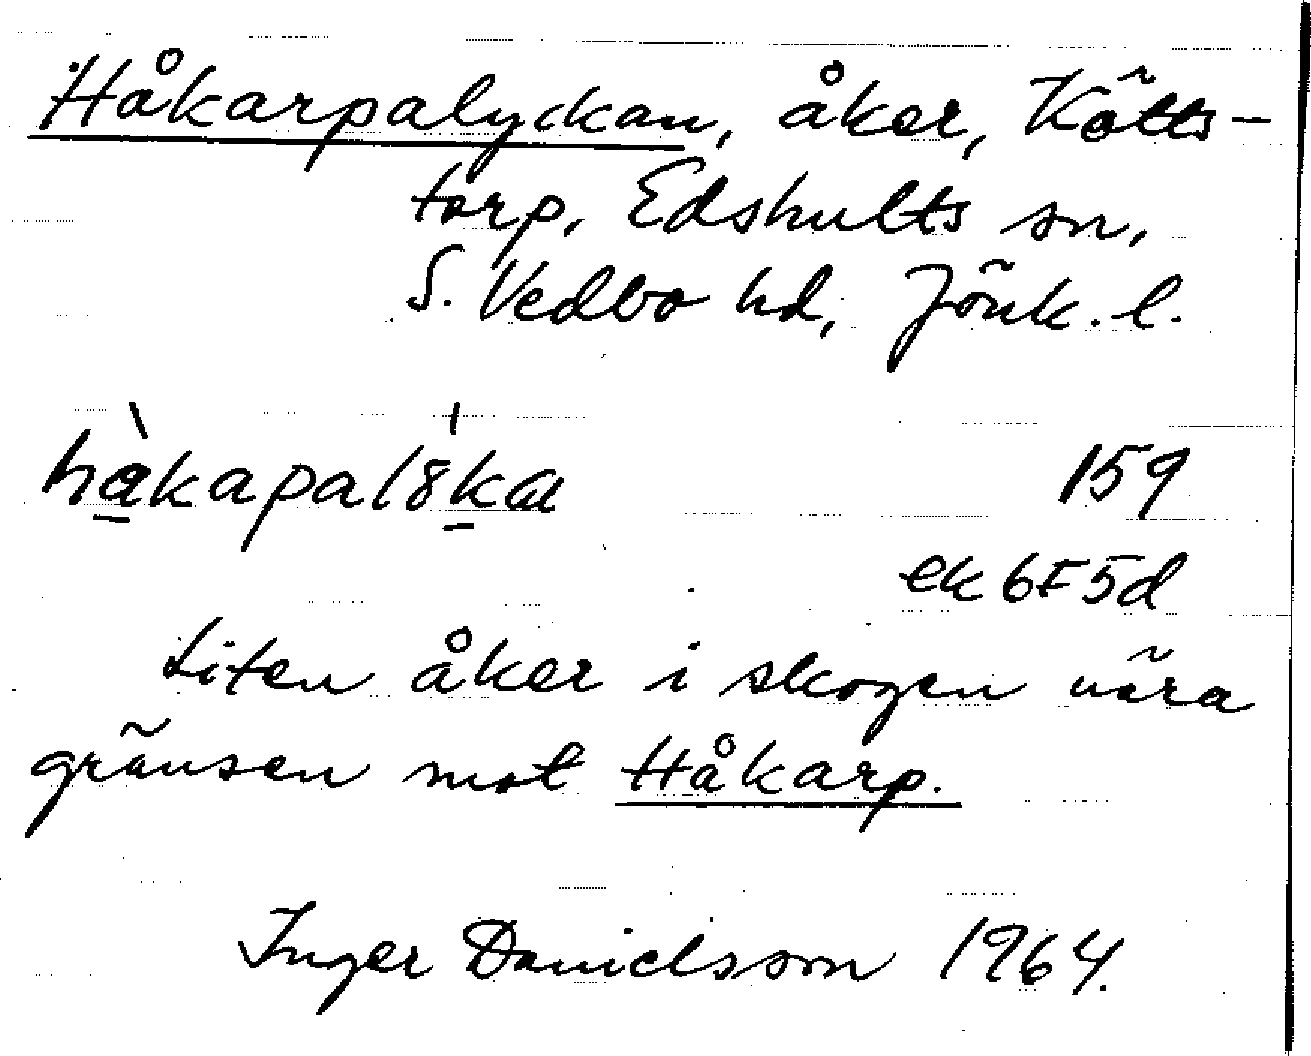 Håkarpalyckan, åker, Kötts-
torp, Edshults sn,
S. Vedbo hd, Jönk. l.
hàkapal8ka
159
ek 6F5d
Liten åker i skogen nära
gränsen mot Håkarp.
Inger Danielsson 1964.